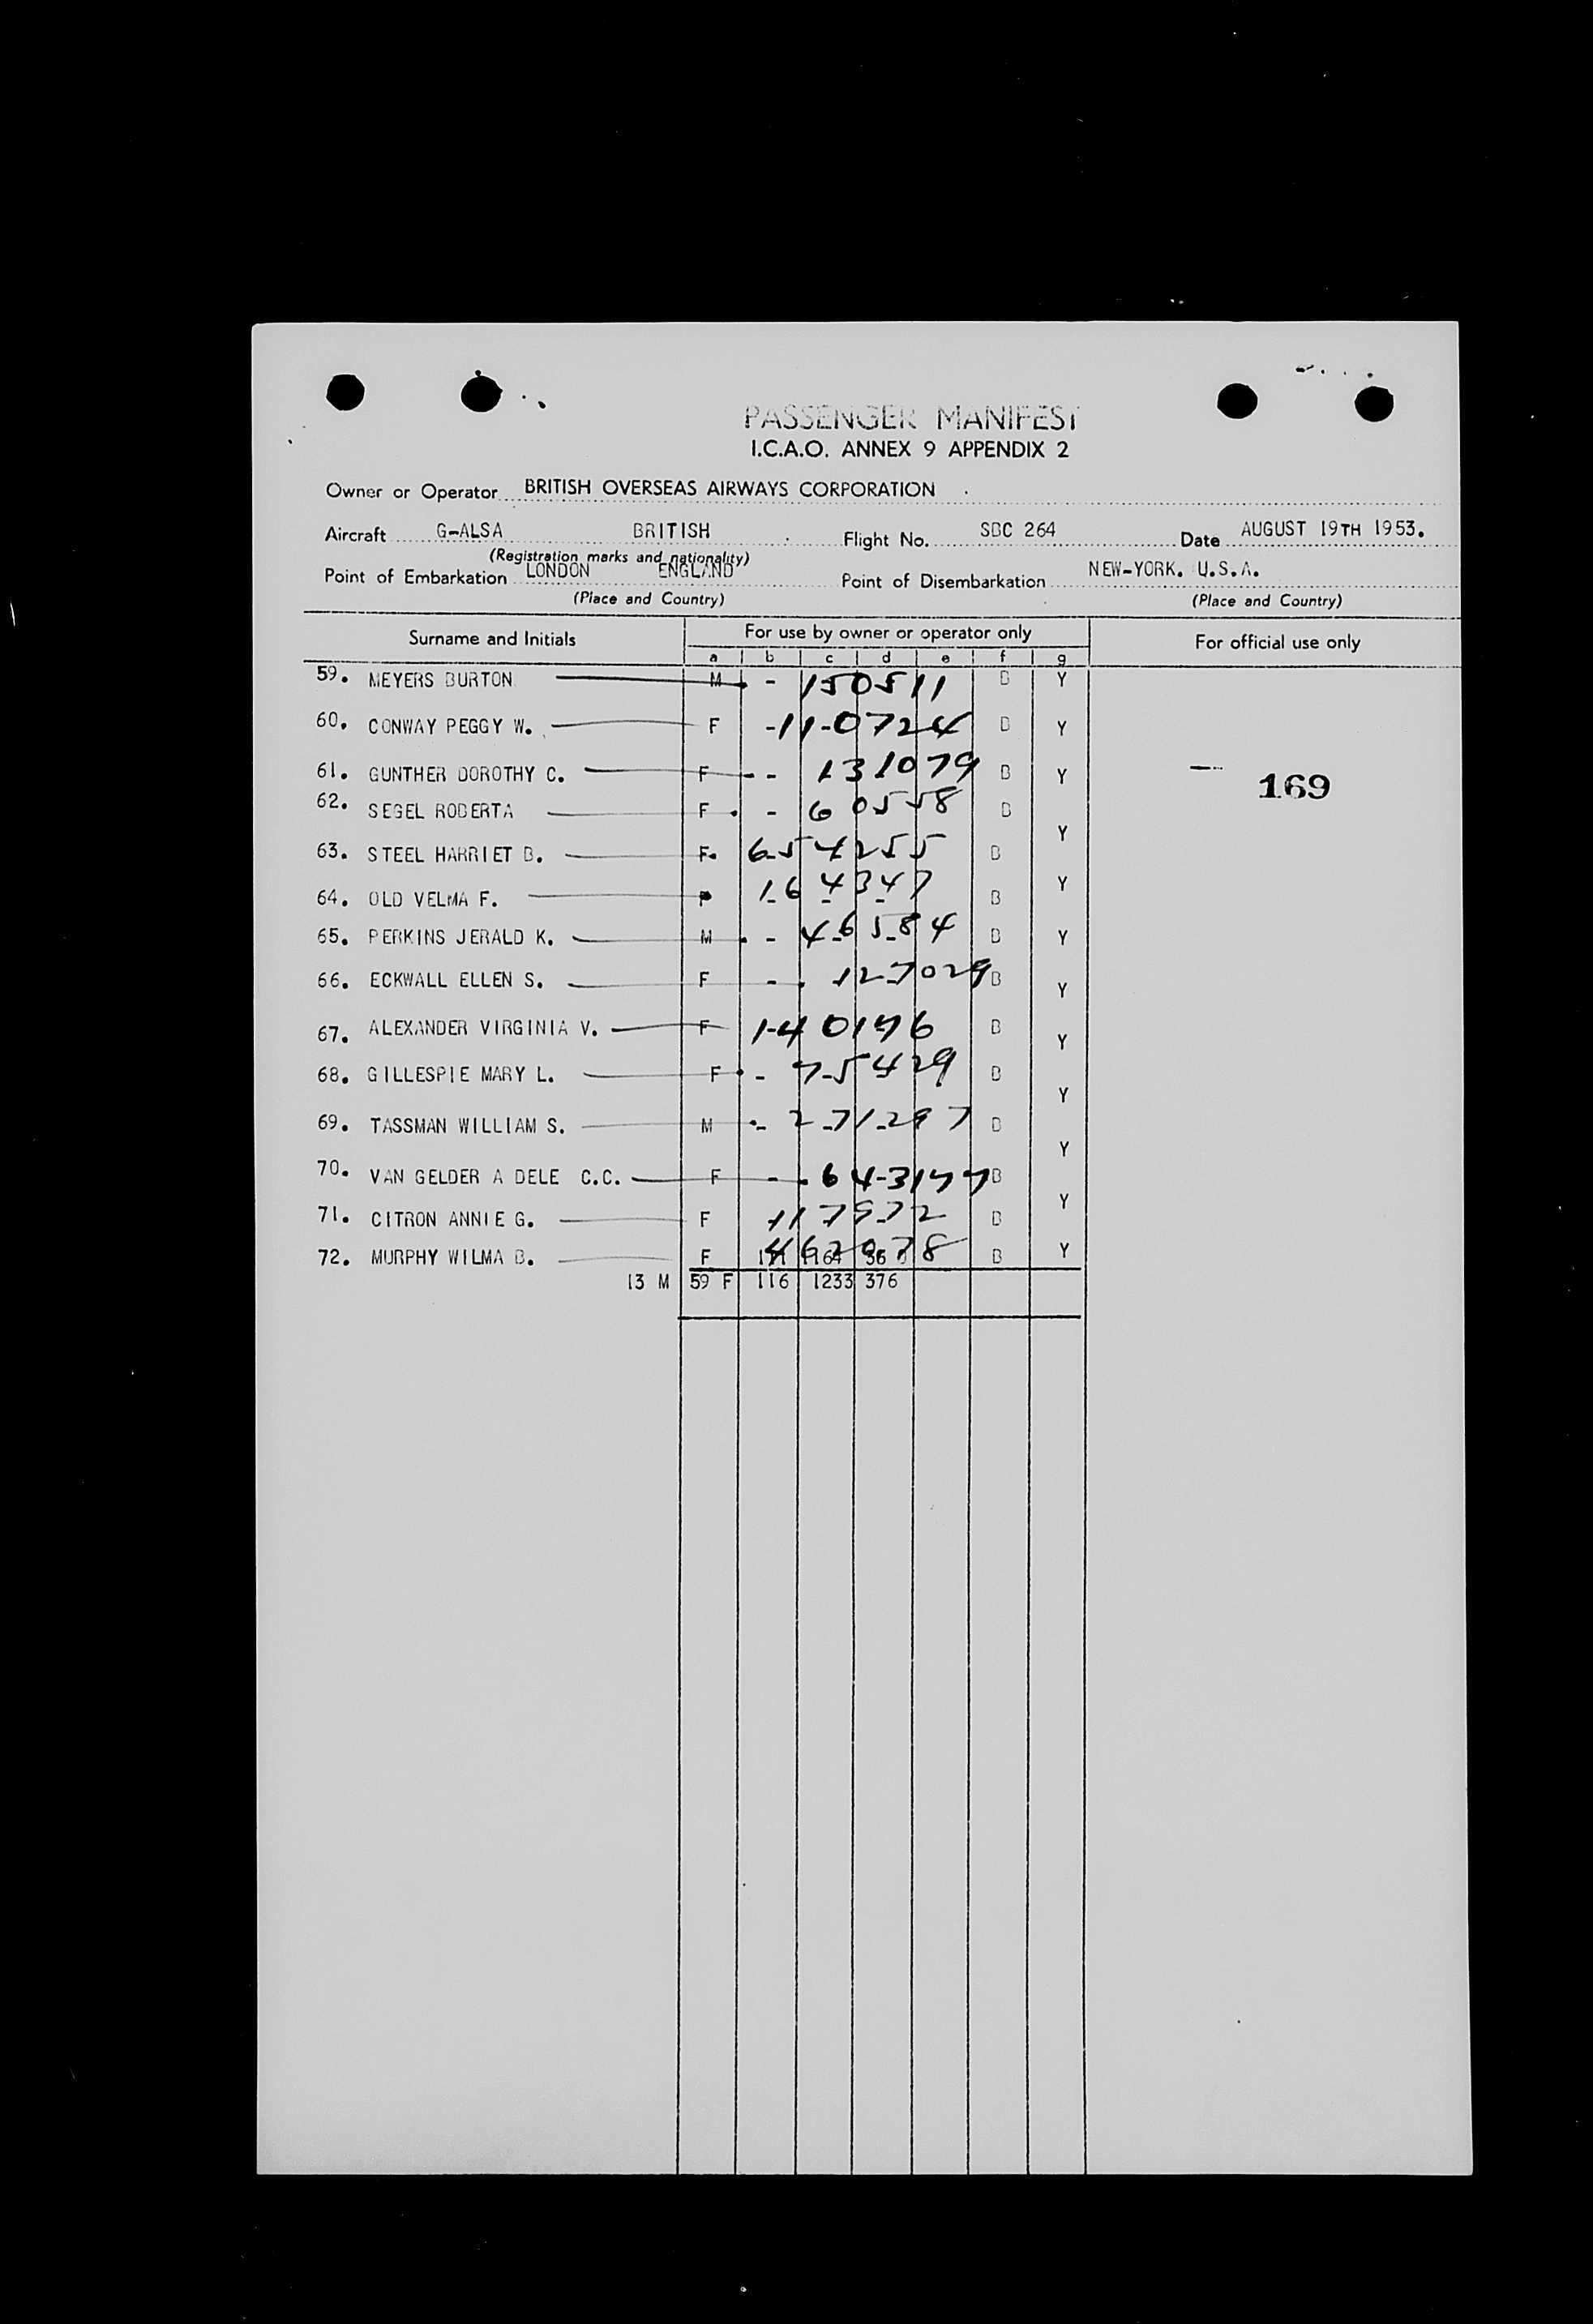 PASSENGER MANIFEST
I.C.A.O. ANNEX 9 APPENDIX 2
Owner or Operator BRITISH OVERSEAS AIRWAYS CORPORATION
Aircraft G-ALSA BRITISH Flight No. SBC 264 Date AUGUST 19TH 1953.
(Registration marks and nationality)
Point of Embarkation LONDON ENGLAND Point of Disembarkation NEW-YORK. U.S.A.
(Place and Country) (Place and Country)
Surname and Initials For use by owner or operator only For official use only
a b c d e f g
59. MEYERS BURTON M - 150511 B Y
60. CONWAY PEGGY W. F -11-0724 B Y
61. GUNTHER DOROTHY C. F - - 131079 B Y
169
62. SEGEL ROBERTA F - 60558 B
Y
63. STEEL HARRIET B. F 654255 B
Y
64. OLD VELMA F. F 164347 B
65. PERKINS JERALD K. M - 46584 B Y
66. ECKWALL ELLEN S. F - 127029 B
Y
67. ALEXANDER VIRGINIA V. F B
Y
68. GILLESPIE MARY L. F - 75429 B
Y
69. TASSMAN WILLIAM S. M - 271297 B
Y
70. VAN GELDER A DELE C.C. F - B
Y
71. CITRON ANNIE G. F B
72. MURPHY WILMA B. F B Y
13 M 59 F 116 1233 376